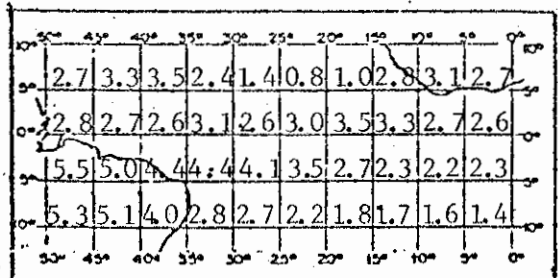 50° 45° 40° 35° 30° 25° 20° 15° 10° 5° 0°
10° 10°
2.7 3.3 3.5 2.4 1.4 0.8 1.0 2.8 3.1 2.7
5° 5°
2.8 2.7 2.6 3.1 2.6 3.0 3.5 3.3 2.7 2.6
0° 0°
5.5 5.0 4.4 4.4 4.1 3.5 2.7 2.3 2.2 2.3
5° 5°
5.3 5.1 4.0 2.8 2.7 2.2 1.8 1.7 1.6 1.4
10° 10°
50° 45° 40° 35° 30° 25° 20° 15° 10° 5° 0°